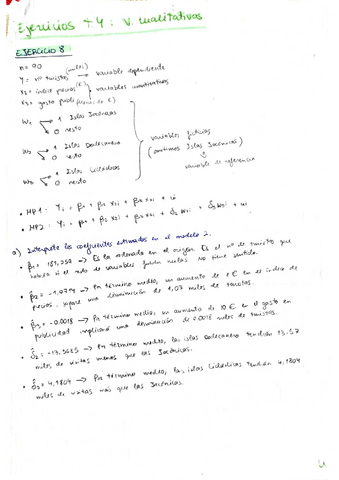 Ejercicios T.4: V. cualitativas
EJERCICIO 8
n = 90
Y = nº turistas (miles) → variable dependiente
X2 = índice precios (€)
X3 = gasto publi
variables cuantitativas
W1 1 Islas Jónicas
0 resto
W2 1 Islas Dodecaneso
0 resto
W3 1 Islas Cícladas
0 resto
variables ficticias
(omitimos Islas Jónicas)
variable de referencia
• MP1: Yi = β1 + β2 X2i + β3 X3i + ui
• MP2: Yi = β1 + β2 X2i + β3 X3i + δ2 W2i + δ3 W3i + ui
a) Interprete los coeficientes estimados en el modelo 2.
• β̂1 = → Es la ordenada en el origen. Es el nº de turistas que
habría si el resto de variables fueran nulas. No tiene sentido.
• β̂2 = → En término medio, un aumento de 1 € en el índice de
precios, supone una disminución de 1,07 miles de turistas.
• β̂3 = -0,0018 → En término medio, un aumento de € en el gasto en
publicidad implicará una disminución de 0,0018 miles de turistas.
• δ̂2 = → En término medio, las islas Dodecaneso tendrán 13,57
miles de visitas menos que las Jónicas.
• δ̂3 = 4,1804 → Por término medio, las islas Cícladas tendrán 4,1804
miles de visitas más que las Jónicas.